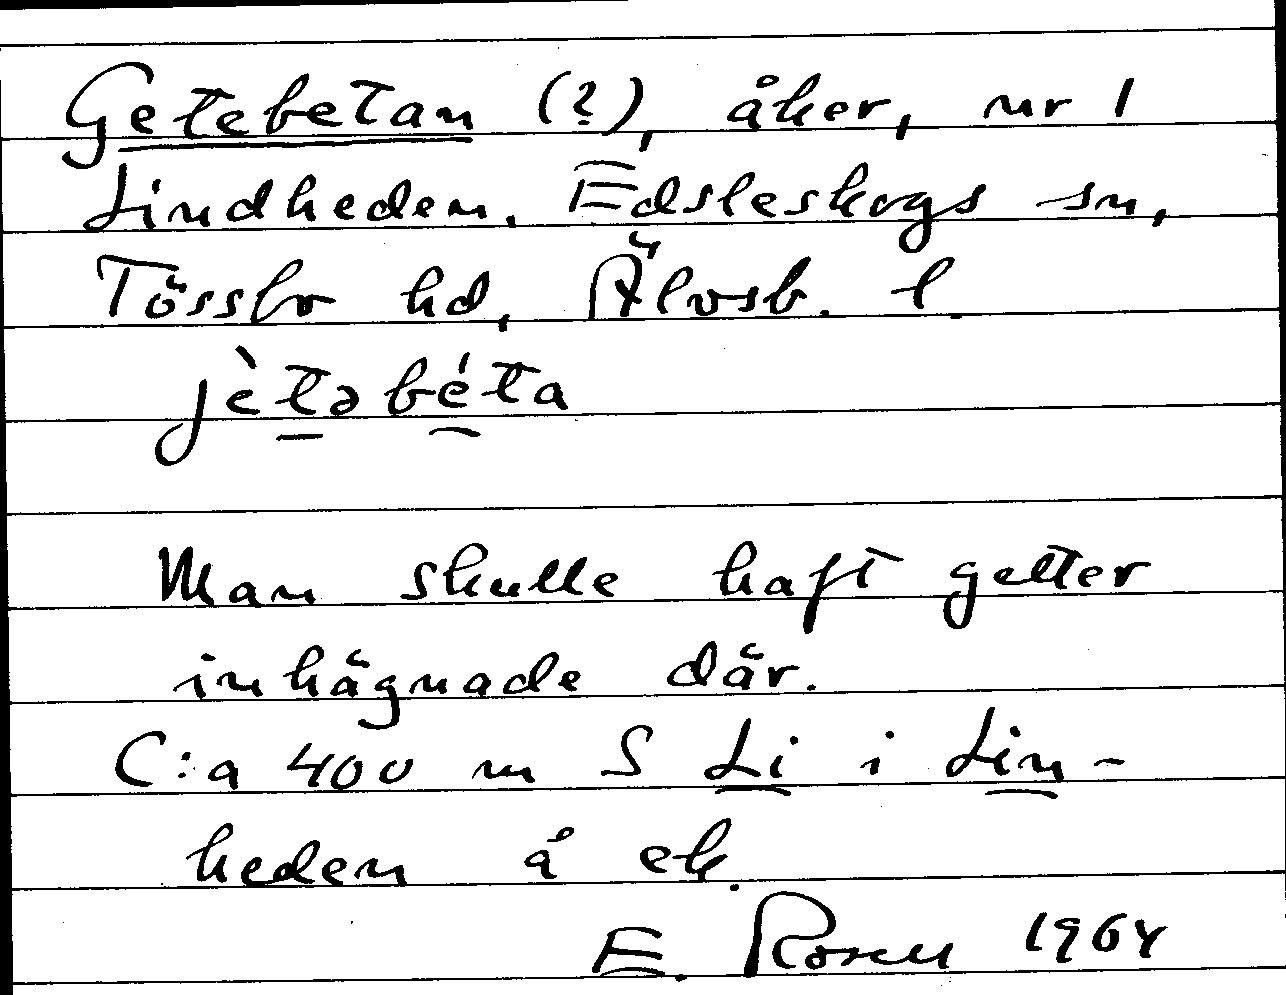 Getebetan (?), åker, nr 1
Lindheden, Edsleskogs sn,
Tössbo hd, Älvsb. l.
jὲtəbéta
Man skulle haft getter
inhägnade där.
C:a 400 m S Li i Lin-
heden å ek.
E. Rosen 1964